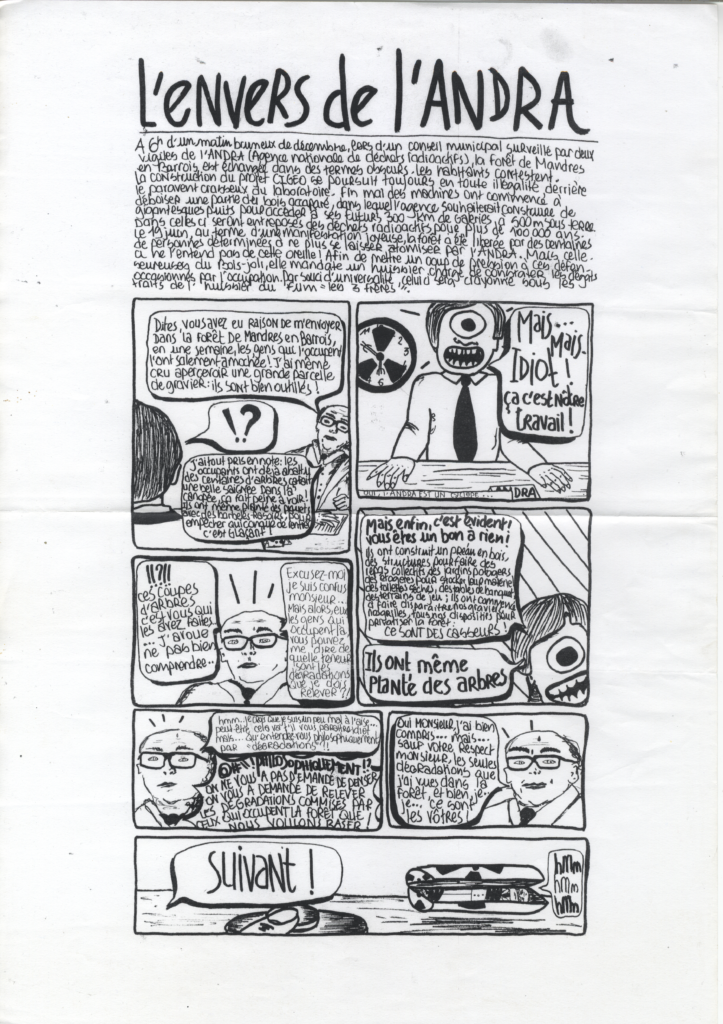 L'ENVERS de l'ANDRA
À 6h d'un matin brumeux de décembre, lors d'un conseil municipal surveillé par deux
vigiles de l'ANDRA (Agence nationale de déchets radioactifs), la forêt de Mandres
en Barrois est échangée dans des termes obscurs. Les habitants contestent.
la construction du projet CIGEO se poursuit toujours en toute illégalité derrière
le paravent crasseux du laboratoire. Fin mai des machines ont commencé à
déboiser une partie du bois accaparé, dans lequel l'agence souhaiterait construire de
gigantesques puits pour accéder à ses futurs 300 km de galeries à 500m sous terre.
Dans celles ci seront entreposés des déchets radioactifs pour plus de 100 000 ans.
Le 19 juin, au terme d'une manifestation joyeuse, la forêt a été libérée par des centaines
de personnes déterminées à ne plus se laisser atomiser par l'ANDRA. Mais celle-
ci ne l'entend pas de cette oreille ! Afin de mettre un coup de pression à ces défen-
seureuses du Bois-joli, elle mandate un huissier chargé de constater les dégâts
occasionnés par l'occupation. Par souci d'universalité celui ci sera crayonné sous les
traits de l'huissier du film "les 3 frères".
Dites, vous avez eu raison de m'envoyer
dans la forêt de Mandres en Barrois,
en une semaine, les gens qui l'occupent
l'ont salement amochée ! J'ai même
cru apercevoir une grande parcelle
de gravier: ils sont bien outillés !
!?
J'ai tout pris en note: les
occupants ont déjà abattu
des centaines d'arbres, cafait
une belle saignée dans la
canopée, ça fait peine à voir !
ils ont même planté des piquets
avec des barbelés rasoirs, pour
empêcher quiconque de rentrer
c'est Glaçant !
Mais...
Mais..
Idiot !
ça c'est notre
travail !
OUI L'ANDRA EST UN CYCLOPE...
DRA
!!?!!
ces coupes
d'arbres
c'est vous qui
les avez faites
... J'avoue
ne pas bien
comprendre..
Excusez-moi
je suis confus
monsieur...
Mais alors, eux
les gens qui
occupent là,
vous pouvez
me dire de
quelle teneur
sont les
dégradations
que je dois
relever ?
Mais enfin, c'est évident!
vous êtes un bon à rien !
ils ont construit un préau en bois,
des structures pour faire des
repas collectifs, des jardins potagers,
des étagères pour stocker leur matériel,
des toilettes sèches, des tables de banquet,
des terrains de jeu ; ils ont commencé
à faire disparaître nos graviers
naturelles, tous nos dispositifs pour
privatiser la forêt.
CE SONT DES CASSEURS !
Ils ont même
PLANTÉ des arbres
hmm... je crois que je suis un peu mal à l'aise...
peut-être cela va t'il vous paraître idiot
mais... Qu'entendez-vous philosophiquement
par "dégradations" ?!
@#!\ PHILOSOPHIQUEMENT !?
ON NE VOUS A PAS DEMANDÉ DE PENSER
ON VOUS A DEMANDÉ DE RELEVER
LES DÉGRADATIONS COMMISES PAR
CEUX QUI OCCUPENT LA FORÊT QUE
NOUS VOULONS RASER !
Oui Monsieur, j'ai bien
compris... mais...
sauf votre respect
monsieur, les seules
dégradations que
j'ai vues dans la
forêt, et bien je..
je... ce sont
les vôtres !
Suivant !
hmm
hmm
hmm